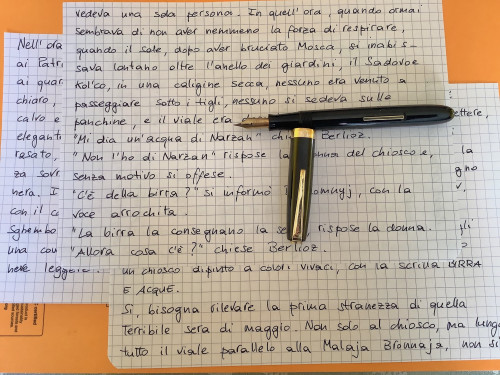 Nell'ora
ai Patri
ai quar
chiaro,
calvo e
eleganti
rasato,
za sovr
nera. I
con il c
sghembo
una
nere
vedeva una sola persona. In quell'ora, quando ormai
sembrava di non aver nemmeno la forza di respirare,
quando il sole, dopo aver bruciato Mosca, si inabis-
sava lontano oltre l'anello dei giardini, il Sadovoe
Kol'co, in una caligine secca, nessuno era venuto a
passeggiare sotto i tigli, nessuno si sedeva sulle
panchine, e il viale era
"Mi dia un'acqua di Narzan" Berlioz.
"Non l'ho di Narzan" rispose la donna del chiosco e,
senza motivo si offese.
"C'è della birra?" si informò con la
voce arrochita.
"La birra la consegnano la rispose la donna.
"Allora cosa c'è?" chiese Berlioz.
ettere,
la
gno
un chiosco dipinto a colori vivaci, con la scritta BIRRA
E ACQUE.
Sì, bisogna rilevare la prima stranezza di quella
terribile sera di maggio. Non solo al chiosco, ma lungo
tutto il viale parallelo alla Malaja Bronnaja, non si